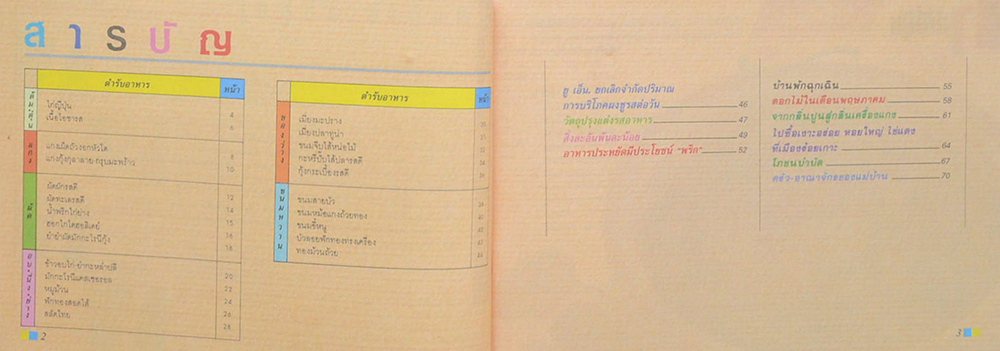 สารบัญ
ตำรับอาหาร หน้า
ต้ม-ตุ๋น
ไก่ญี่ปุ่น 4
เนื้อโอชารส 6
แกง
แกงเผ็ดถั่วงอกหัวโต 8
10
ผัด
ผัดผักรสดี 12
ผัดทะเลรสดี 14
น้ำพริกไก่ย่าง 15
ฮอกไกโดฮอลิเดย์ 16
ยำยำผัดมักกะโรนีกุ้ง 18
อบ-นึ่ง-ย่าง
20
มักกะโรนีแคสเซอรอล 22
หมูม้วน 24
ฟักทองสอดไส้ 26
สลัดไทย 28
2
ตำรับอาหาร หน้า
ของว่าง
เมี่ยงมะปราง
เมี่ยงปลาทูน่า
ขนมจีบไส้หน่อไม้
กะหรี่ปั๊บไส้ปลารสดี
กุ้งกระเบื้องรสดี
ขนมหวาน
ขนมสายบัว
ขนมหม้อแกงถ้วยทอง
ขนมขี้หนู
บัวลอยฟักทองทรงเครื่อง
ทองม้วนถ้วย
ยู เอ็น. ยกเลิกจำกัดปริมาณ
การบริโภคผงชูรสต่อวัน 46
วัตถุปรุงแต่งรสอาหาร 47
สิ่งละอันพันละน้อย 49
อาหารประหยัดมีประโยชน์ "พริก" 52
บ้านพักฉุกเฉิน 55
ดอกไม้ในเดือนพฤษภาคม 58
จากกลิ่นปูนสู่กลิ่นเครื่องแกง 61
ไปซื้อเงาะอร่อย หอยใหญ่ ไข่แดง
ที่เมืองร้อยเกาะ 64
โภชนบำบัด 67
ครัว-อาณาจักรของแม่บ้าน 70
3